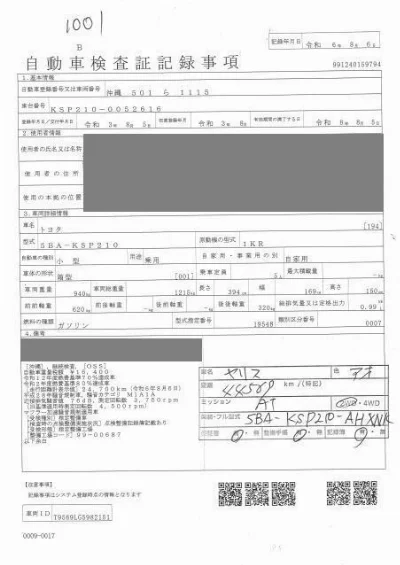 1001
B
記録年月日 令和 6年 8月 6日
自動車検査証記録事項
991240159794
1.基本情報
自動車登録番号又は車両番号 沖縄 501 ら 1115
車台番号 KSP210-0052616
登録年月日/交付年月日 令和 3年 8月 5日 初度登録年月 令和 3年 8月 有効期間の満了する日 令和 8年 8月 5日
2.使用者情報
使用者の氏名又は名称
使用者の住所
使用の本拠の位置
3.車両詳細情報
車名 トヨタ [194]
型式 5BA-KSP210 原動機の型式 1KR
自動車の種別 小型 用途 乗用 自家用・事業用の別 自家用
車体の形状 箱型 [001] 乗車定員 5人 最大積載量 -kg
車両重量 940kg 車両総重量 1215kg 長さ 394cm 幅 169cm 高さ 150cm
前前軸重 620kg 前後軸重 -kg 後前軸重 -kg 後後軸重 320kg 総排気量又は定格出力 0.99L
燃料の種類 ガソリン 型式指定番号 19548 類別区分番号 0007
4.備考
[沖縄],継続検査,[OSS]
自動車重量税額 ¥16,400
令和12年度燃費基準70%達成車
令和2年度燃費基準80%達成車
[走行距離計表示値] 24,700km (令和6年8月6日)
平成28年騒音規制車,騒音カテゴリ M1A1A
マフラー加速騒音規制適用車
[受検種別] 指定整備車
[受検形態] 指定整備工場
[整備工場コード] 99-00687
以下余白
車名 ヤリス 色 アオ
km/(時間)
ミッション AT 2WD・4WD
5BA-KSP210-AHXNK
【注意事項】
記録事項はシステム登録時点の情報となります
車両ID T9069LG5962151
0009-0017